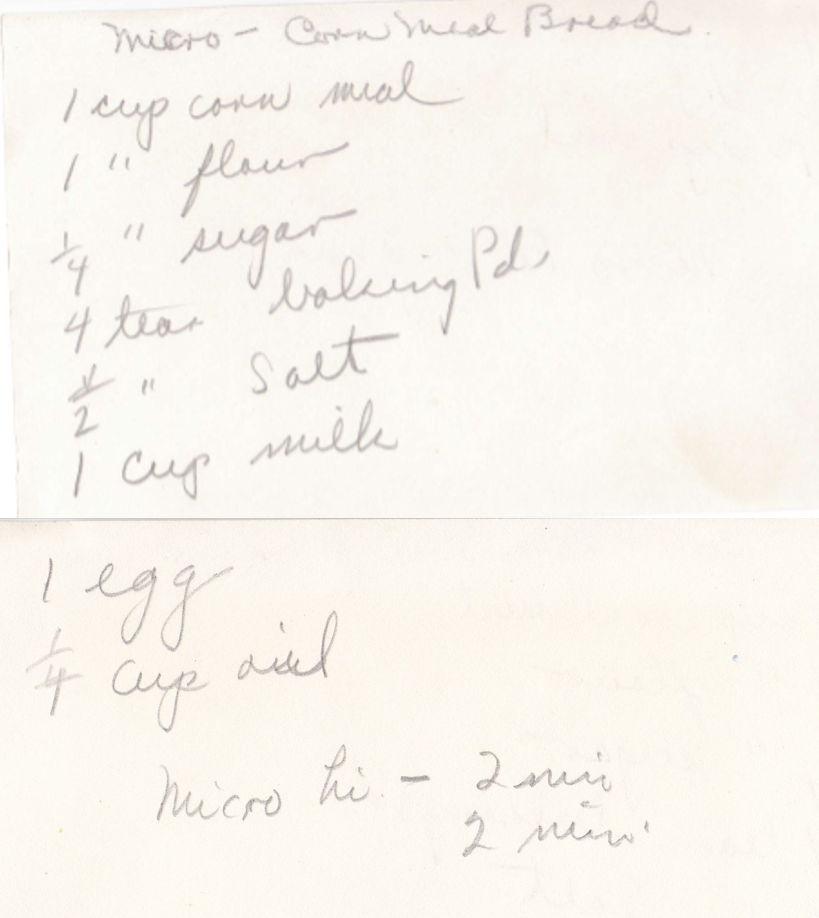 Micro - Corn Meal Bread.
1 cup corn meal
1 " flour
1/4 " sugar
4 teas baking Pd.
1/2 " Salt
1 cup milk
1 egg
1/4 cup oil
Micro hi - 2 min
2 min.